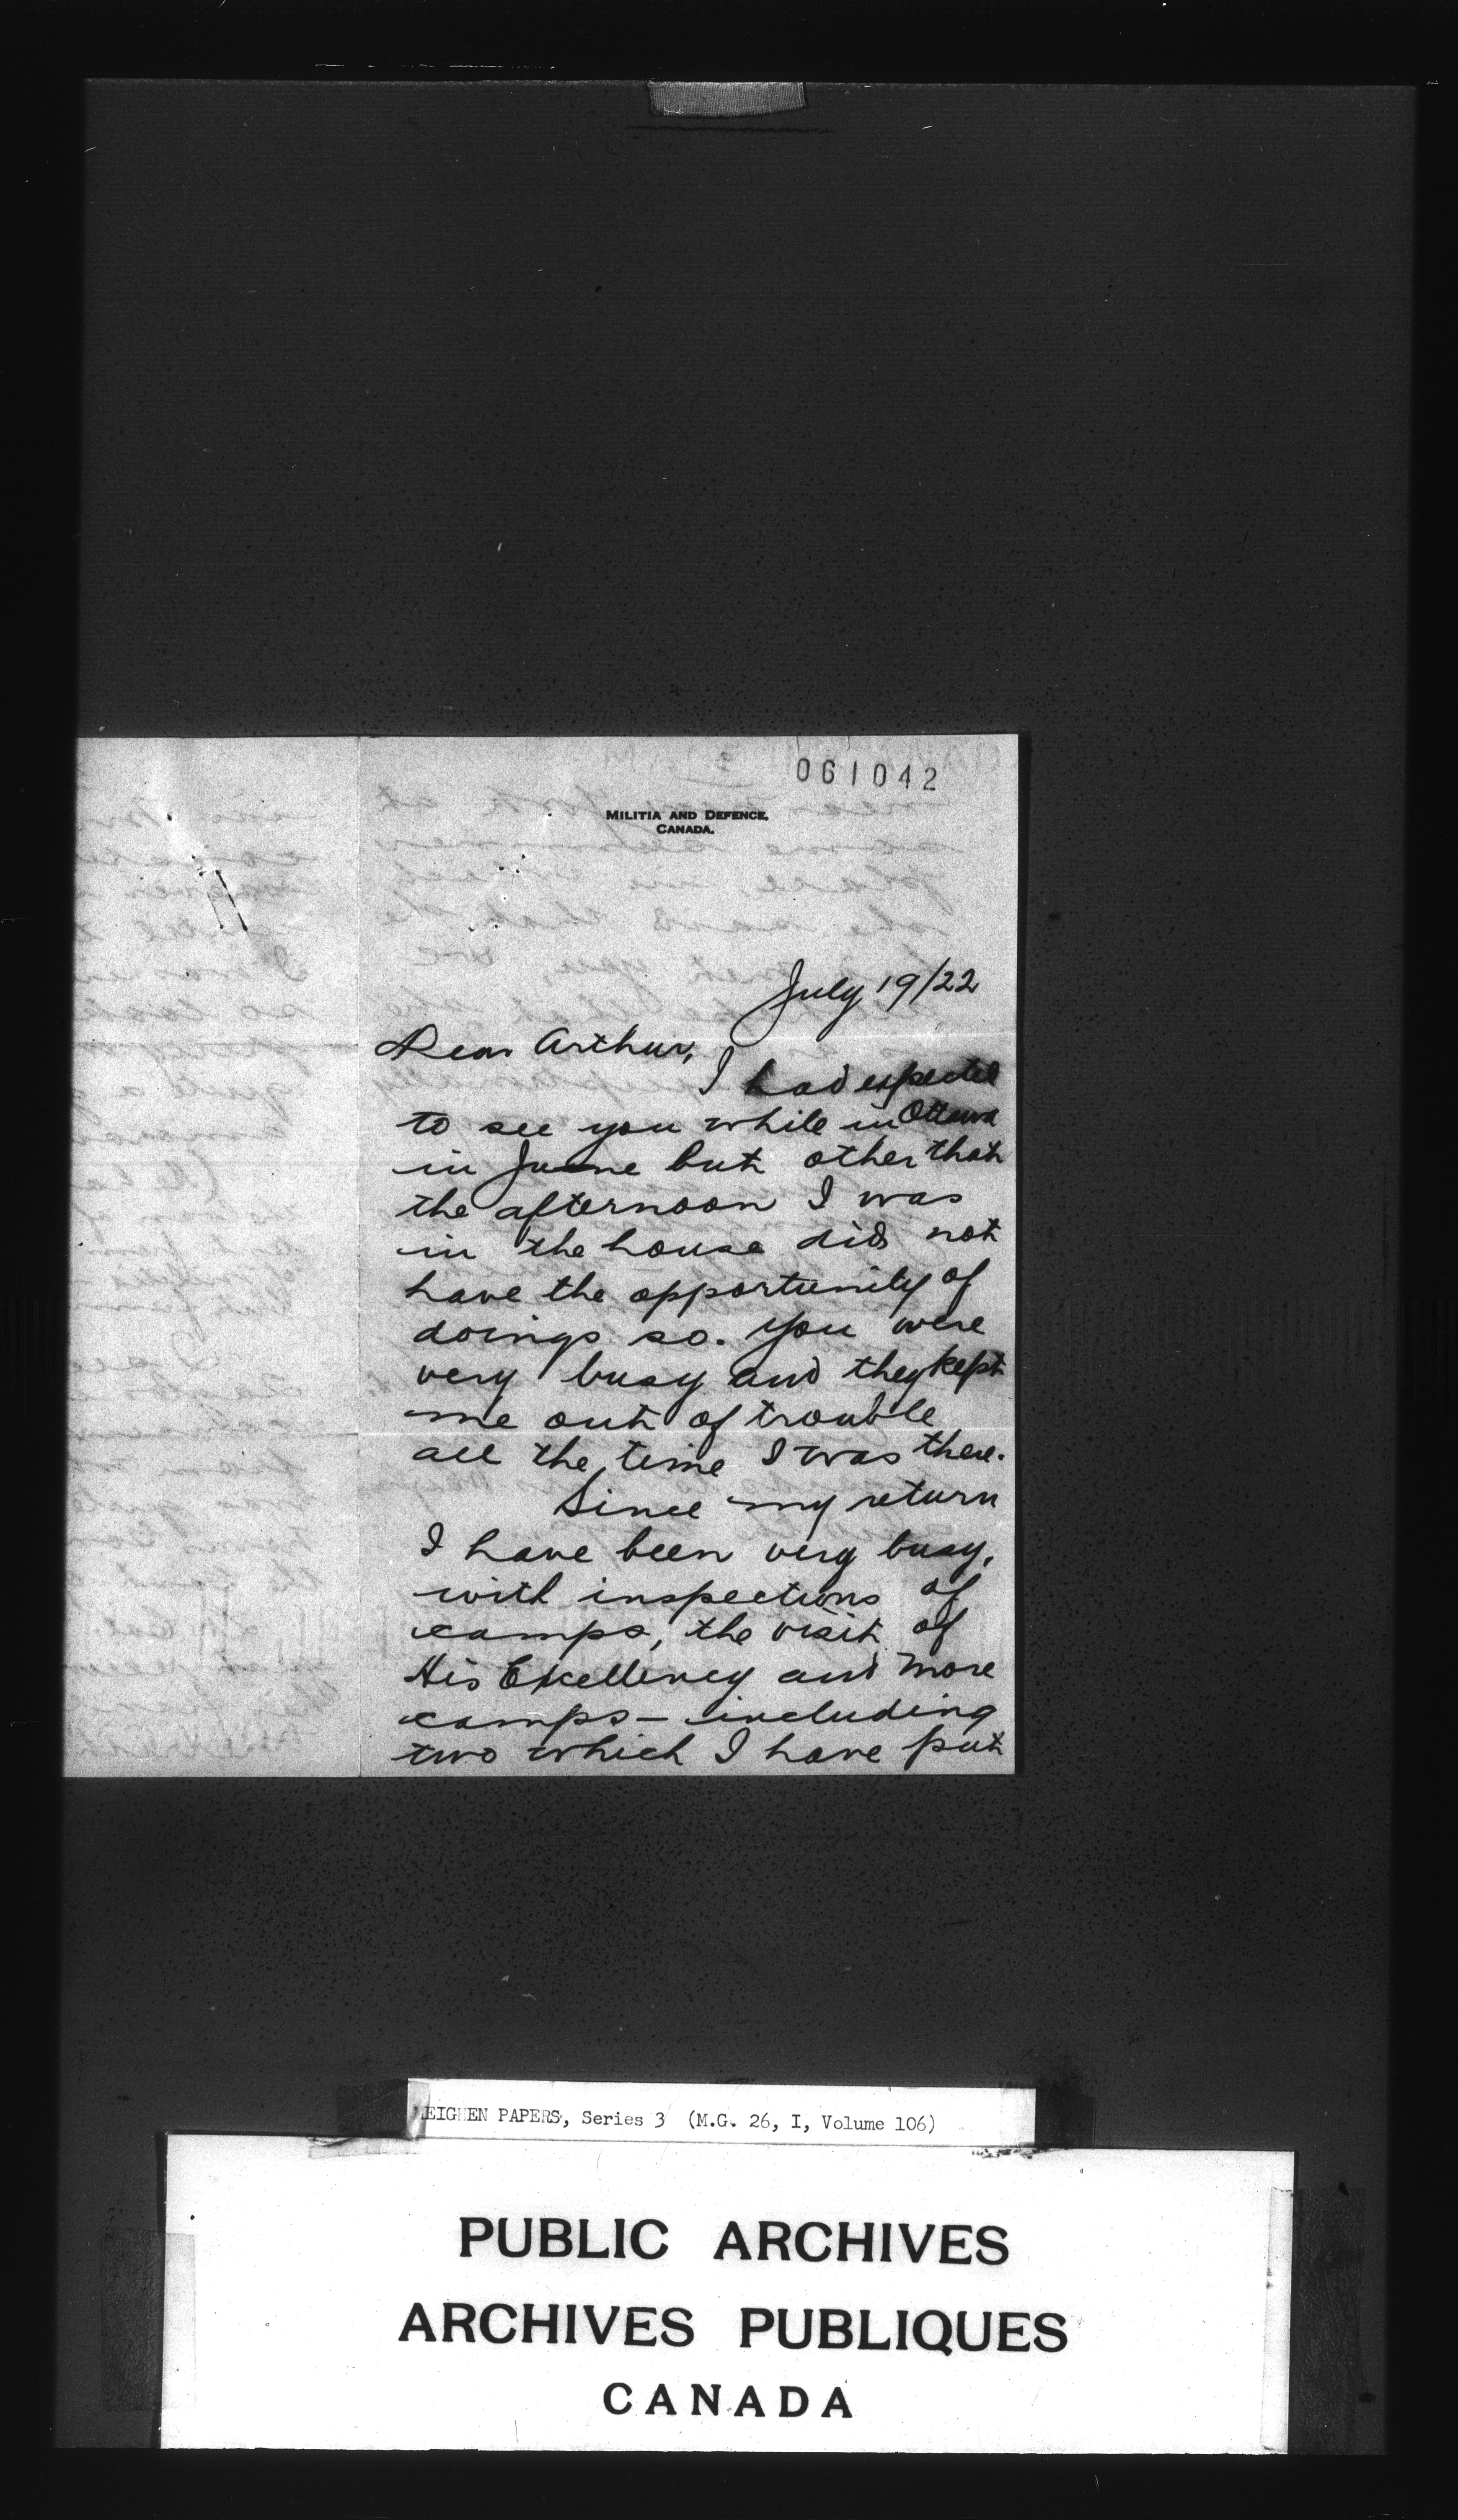 061042
MILITIA AND DEFENCE,
CANADA.
July 19/22
Dear Arthur,
I had expected
to see you while in Ottawa
in June but other than
the afternoon I was
in the house did not
have the opportunity of
doings so. You were
very busy and they kept
me out of trouble
all the time I was there.
Since my return
I have been very busy,
with inspections of
camps, the visit of
His Excellency and more
camps - including
two which I have put
MEIGHEN PAPERS, Series 3 (M.G. 26, I, Volume 106)
PUBLIC ARCHIVES
ARCHIVES PUBLIQUES
CANADA